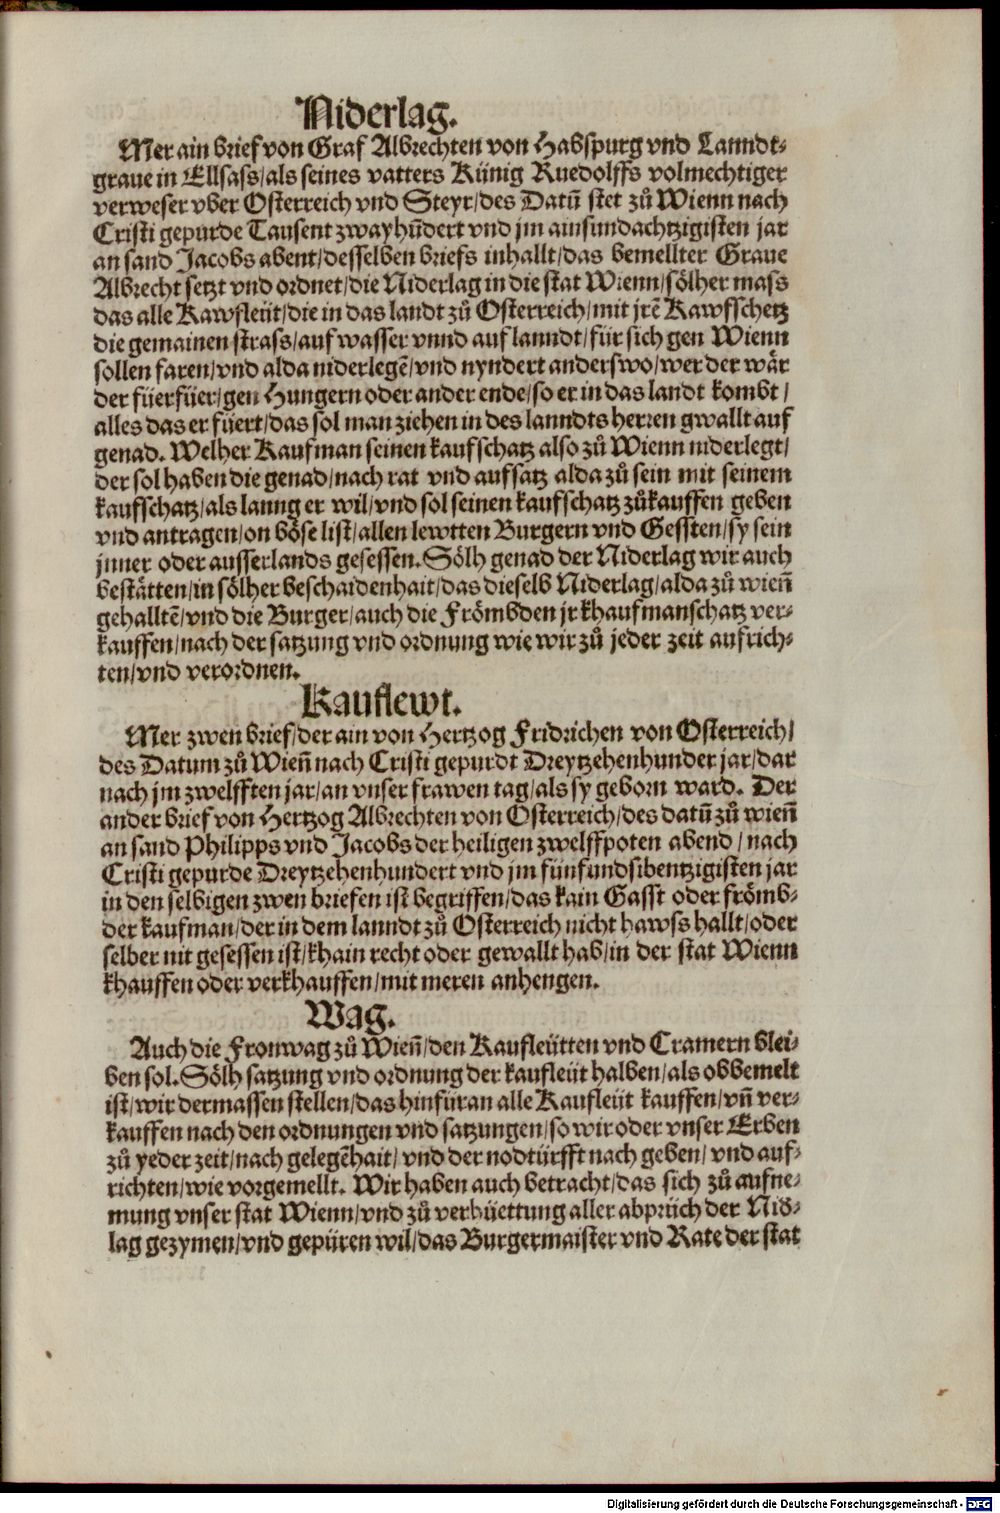 Niderlag.
Mer ain brief von Graf Albrechten von Habspurg vnd Lanndt-
graue in Ellsass/als seines vatters Künig Ruedolffs volmechtiger
verweser vber Osterreich vnd Steyr/des Datū stet zů Wienn nach
Cristi gepurde Tausent zwayhūdert vnd jm ainsundachtzigisten jar
an sand Jacobs abent/desselben briefs inhallt/das bemellter Graue
Albrecht setzt vnd ordnet/die Niderlag in die stat Wienn/sölher mass
das alle Kawfleüt/die in das landt zů Osterreich/mit jrē Kawfschetz
die gemainen strass/auf wasser vnnd auf lanndt/für sich gen Wienn
sollen faren/vnd alda niderlegē/vnd nyndert anderswo/wer der wär
der füerfüer/gen Hungern oder ander ende/so er in das landt kombt/
alles das er füert/das sol man ziehen in des lanndts herren gwallt auf
genad. Welher Kaufman seinen kaufschatz also zů Wienn niderlegt/
der sol haben die genad/nach rat vnd aufsatz alda zů sein mit seinem
kaufschatz/als lanng er wil/vnd sol seinen kaufschatz zůkauffen geben
vnd antragen/on böse list/allen lewtten Burgern vnd Gessten/sy sein
jnner oder ausserlands gesessen. Sölh genad der Niderlag wir auch
bestätten/in sölher beschaidenhait/das dieselb Niderlag/alda zů wieñ
gehalltē/vnd die Burger/auch die Frömbden jr khaufmanschatz ver-
kauffen/nach der satzung vnd ordnung wie wir zů jeder zeit aufrich-
ten/vnd verordnen.
Kauflewt.
Mer zwen brief/der ain von Hertzog Fridrichen von Osterreich/
des Datum zů Wieñ nach Cristi gepurdt Dreytzehenhunder jar/dar
nach jm zwelfften jar/an vnser frawen tag/als sy geborn ward. Der
ander brief von Hertzog Albrechten von Osterreich/des datū zů wieñ
an sand Philipps vnd Jacobs der heiligen zwelffpoten abend/nach
Cristi gepurde Dreytzehenhundert vnd jm fünfundsibentzigisten jar
in den selbigen zwen briefen ist begriffen/das kain Gasst oder frömb-
der kaufman/der in dem lanndt zů Osterreich nicht hawss hallt/oder
selber nit gesessen ist/khain recht oder gewallt hab/in der stat Wienn
khauffen oder verkhauffen/mit meren anhengen.
Wag.
Auch die Fronwag zů Wieñ/den Kaufleütten vnd Cramern blei-
ben sol. Sölh satzung vnd ordnung der kaufleüt halben/als obbemelt
ist/wir dermassen stellen/das hinfüran alle Kaufleüt kauffen/vñ ver-
kauffen nach den ordnungen vnd satzungen/so wir oder vnser Erben
zů yeder zeit/nach gelegēhait/vnd der nodtürfft nach geben/vnd auf-
richten/wie vorgemellt. Wir haben auch betracht/das sich zů aufne-
mung vnser stat Wienn/vnd zů verhüettung aller abprüch der Nid-
lag gezymen/vnd gepüren wil/das Burgermaister vnd Rate der stat
Digitalisierung gefördert durch die Deutsche Forschungsgemeinschaft - DFG